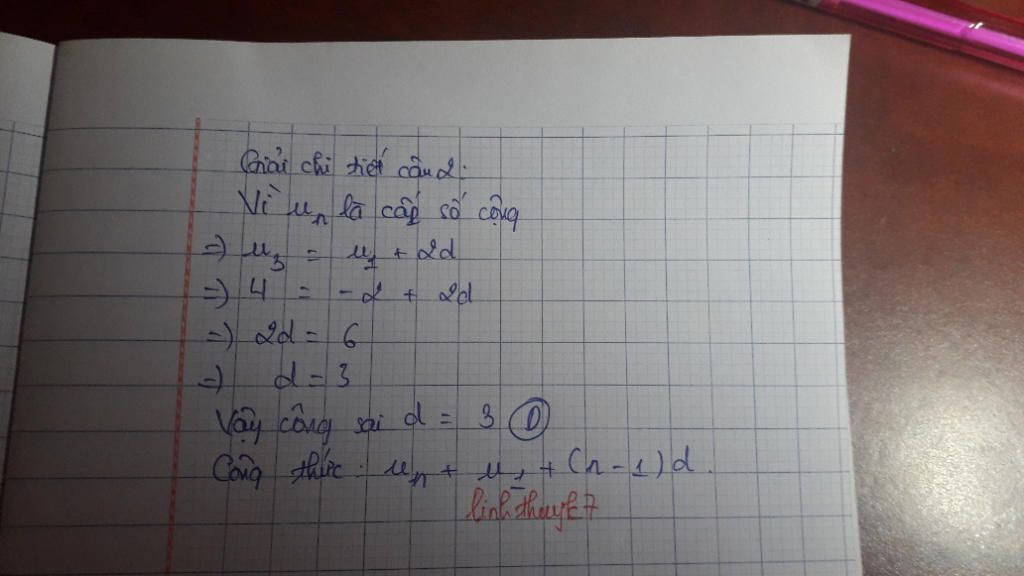 Giải chi tiết câu 2:
Vì uₙ là cấp số cộng
=) u₃ = u₁ + 2d
=) 4 = -2 + 2d
=) 2d = 6
=) d = 3
Vậy công sai d = 3 Ⓓ
Công thức: uₙ + u₁ + (n - 1)d.
linhthuyk7